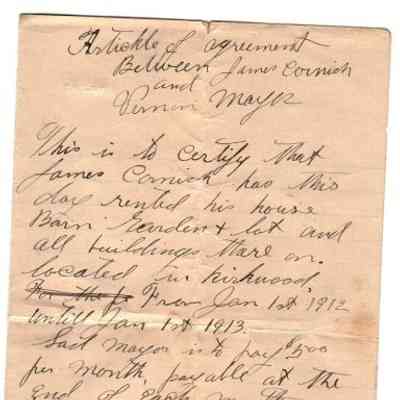 Artickle of agreement
Between James Cornish
and
Vernon Mayer
This is to certify that
James Cornish has this
day rented his house
Barn Garden & lot and
all buildings thare on.
located in Kirkwood
For the From Jan 1st 1912
untill Jan 1st 1913.
Said Mayor is to pay $5.00
per month payable at the
End of Each month